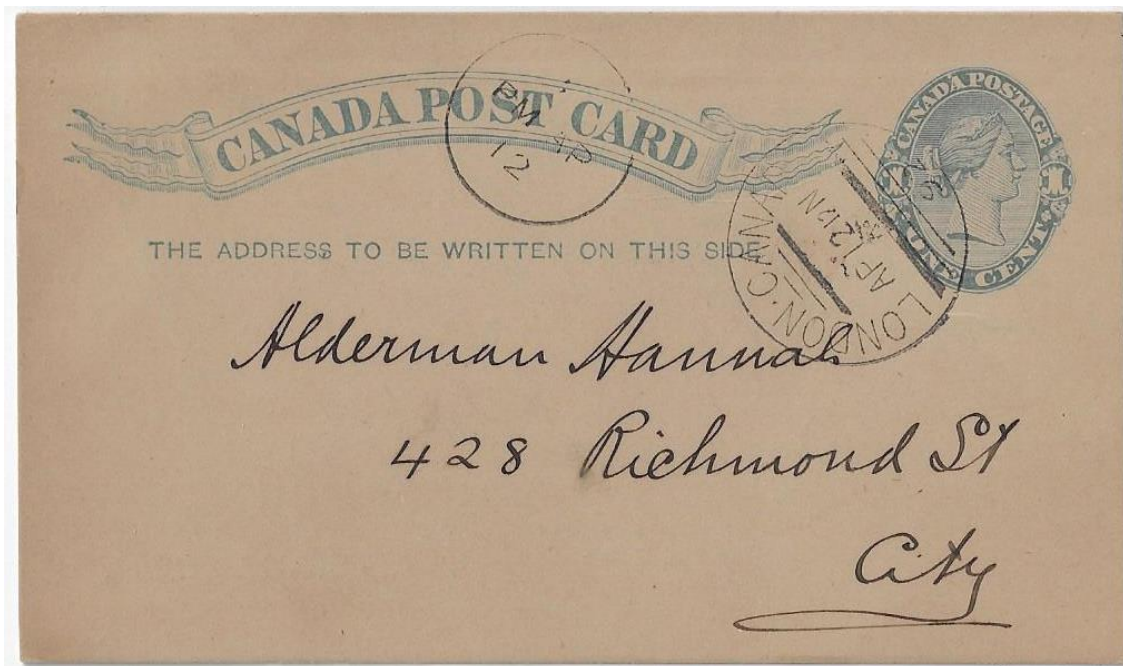 CANADA POST CARD
CANADA POSTAGE
ONE CENT
PM AP
12
LONDON·CANADA
AP 12
THE ADDRESS TO BE WRITTEN ON THIS SIDE
Alderman Hannah
428 Richmond St
City